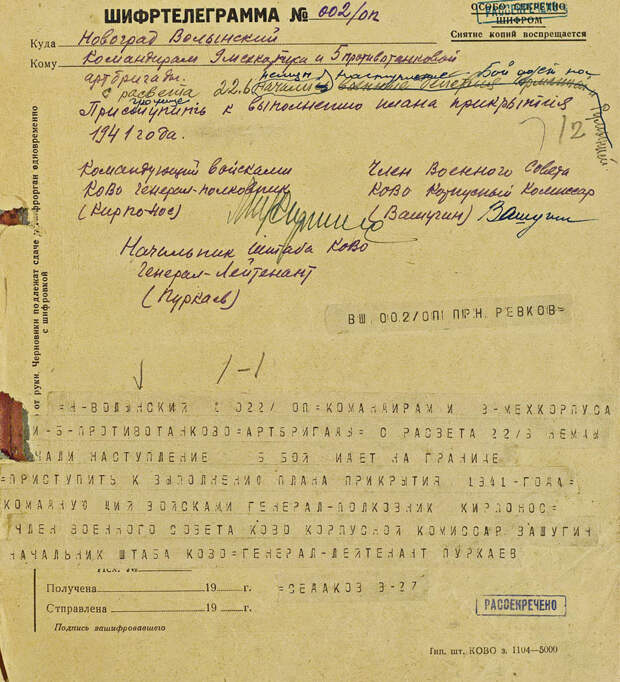 ШИФРТЕЛЕГРАММА № 002/оп
ОСОБО СЕКРЕТНО
ШИФРОМ
Снятие копий воспрещается
Куда Новоград Волынский
Кому Командирам 9 мехкорпуса и 5 противотанковой
артбригады.
с рассвета 22.6 немцы начали наступление Бой идет на
границе
Приступить к выполнению плана прикрытия
1941 года.
12
Командующий войсками
КОВО Генерал-полковник
(Кирпонос)
Член Военного Совета
КОВО Корпусный Комиссар
(Вашугин) Вашугин
Начальник Штаба КОВО
Генерал-Лейтенант
(Пуркаев)
от руки. Черновики подлежат сдаче в шифрорган одновременно
с шифровкой
ВШ. 002/ОП ПРН. РЕВКОВ=
1-1
=Н-ВОЛЫНСКИЙ 022/ ОП=КОМАНДИРАМ И 9-МЕХКОРПУСА
И-5-ПРОТИВОТАНКОВО=АРТБРИГАДЫ= С РАСВЕТА 22/6 НЕМЫ
ЧАЛИ НАСТУПЛЕНИЕ Б БОЙ ИДЕТ НА ГРАНИЦЕ
=ПРИСТУПИТЬ К ВЫПОЛНЕНИЮ ПЛАНА ПРИКРЫТИЯ 1941-ГОДА=
КОМАНДУЮЩИЙ ВОЙСКАМИ ГЕНЕРАЛ-ПОЛКОВНИК КИРПОНОС=
ЧЛЕН ВОЕННОГО СОВЕТА КОВО КОРПУСНОЙ КОМИССАР ВАШУГИН
НАЧАЛЬНИК ШТАБА КОВО=ГЕНЕРАЛ-ЛЕЙТЕНАНТ ПУРКАЕВ
Исх. №
Получена 19 г.
=СЕДАКОВ 3-27
Отправлена 19 г.
РАССЕКРЕЧЕНО
Подпись зашифровавшего
Тип. шт. КОВО з. 1104—5000